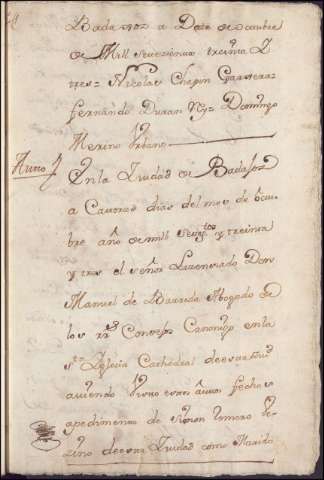 Badajoz a Doze de Octubre
de Mill setezientos treinta I
tres = Nicolas Chapin Carreras
fernando Duran Domingo
Merino Urbano
Auto
En la Ziudad de Badajoz
a Catorze dias del mes de octu
bre año de mil setezos y treinta
y tres el señor Lizenziado Don
Manuel de Abogado de
los rrs Consejos Canonigo en la
sta Iglesia Cathedral de esta Ziud
auiendo Visto estos autos fechos
a pedimento de Simon Romero be
zino de esta Ziudad como Marido